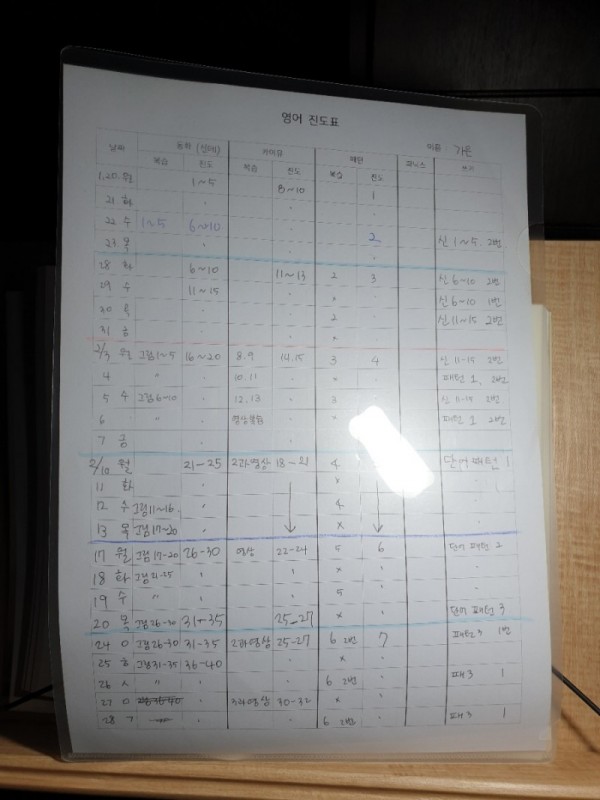 영어 진도표
이름 가온
날짜 동화 (단어) 패턴 쓰기
복습 진도 복습 진도 복습 진도
1.20 월 1~5 8~10 1
21 화
22 수 1~5 6~10
23 목 2 신 1~5 2번
28 화 6~10 11~13 2 3 신 6~10 2번
29 수 11~15 x 신 6~10 1번
30 목 2 신 11~15 2번
31 금 x
2/3 월 그림 1~5 16~20 8.9 14.15 3 4 신 11-15 2번
4 〃 10.11 x 패턴 1, 2번
5 수 그림 6~10 12.13 3 신 11-15 2번
6 〃 x 패턴 1 2번
7 금
2/10 월 21-25 2과영상 18-21 4 단어 패턴 1
11 화 x
12 수 그림 11~16 4
13 목 그림 17~20 x
17 월 그림 17-20 26-30 영상 22-24 5 6 단어 패턴 2
18 화 그림 21-25 x
19 수 〃 5
20 목 그림 26-30 31-35 25-27 x 단어 패턴 3
24 그림 26-30 31-35 2과영상 25-27 6 2번 7 패턴 3 1번
25 그림 31-35 36-40 x
26 〃 6 2번 패 3 1
27 3과영상 30-32 x
28 6 2번 패 3 1